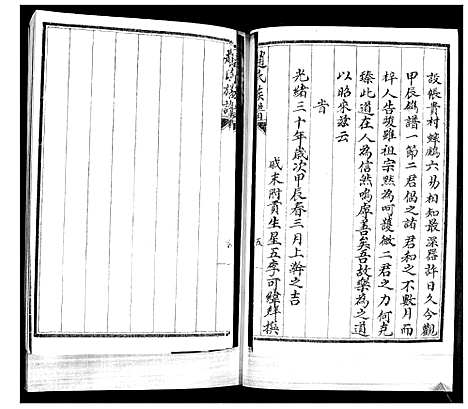 設帳貴村蟀鷉六易相知最深器許日久今觀
甲辰鐫譜一節二君倡之諸君和之不數月而
梓人告竣雖祖宗默為呵護微二君之力何克
臻此道在人為信然嗚虖善矣吾故樂為之道
以昭來茲云
旹
光緒三十年歲次甲辰春三月上澣之吉
戚末附貢生星五李可鐘拜撰
趙氏族譜
五